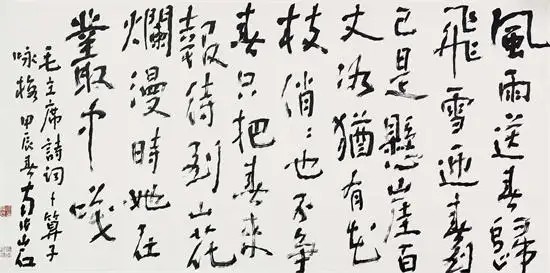 風雨送春歸
飛雪迎春到
已是懸崖百
丈冰猶有花
枝俏〻也不爭
春只把春來
報待到山花
爛漫時她在
叢中笑
毛主席詩詞卜算子
咏梅 甲辰春